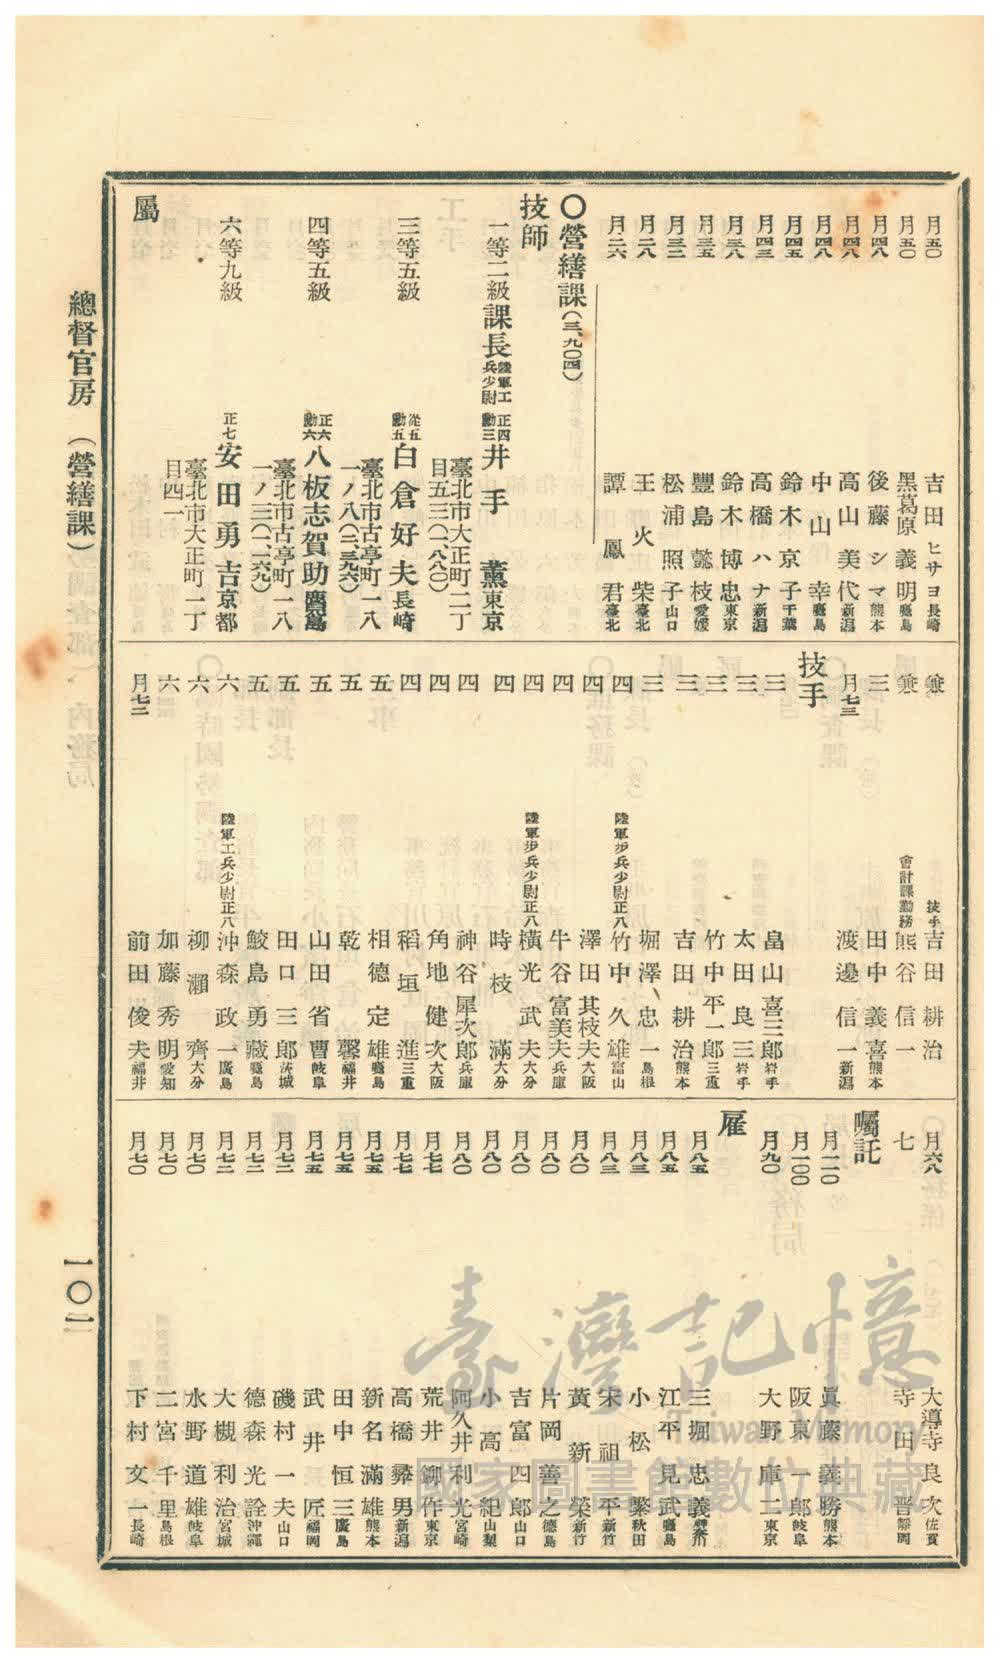 月五〇 吉田ヒサヨ 長崎
月五〇 黑葛原義明 鹿兒島
月四八 後藤シマ 熊本
月四六 高山美代 新潟
月四八 中山幸 鹿兒島
月四五 鈴木京子 千葉
月四三 高橋ハナ 新潟
月三八 鈴木博忠 東京
月三五 豐島懿枝 愛媛
月三三 松浦照子 山口
月二八 王火柴 臺北
月二六 譚鳳君 臺北
〇營繕課(三、九〇四)
技師
一等二級 課長 陸軍工兵少尉 正四勳三 井手薰 東京
臺北市大正町二丁目五三(一、八八〇)
三等五級 從五勳五 白倉好夫 長崎
臺北市古亭町一八一ノ八(二、三九六)
四等五級 正六勳六 八板志賀助 鹿兒島
臺北市古亭町一八一ノ三(二、二六九)
六等九級 正七 安田勇吉 京都
臺北市大正町二丁目四一
屬
兼 技手 吉田耕治
兼 會計課勤務 熊谷信一
三 田中義喜 熊本
月七三 渡邊信一 新潟
技手
三 畠山喜三郎 岩手
三 太田良三 岩手
三 竹中平一郎 三重
三 吉田耕治 熊本
三 堀澤忠一 島根
四 陸軍步兵少尉正八 竹中久雄 富山
四 澤田其枝夫 大阪
四 牛谷富美夫 兵庫
四 陸軍步兵少尉正八 橫光武夫 大分
四 時枝滿 大分
四 神谷犀次郎 兵庫
四 角地健次 大阪
四 稻垣進 三重
五 相德定雄 鹿兒島
五 乾馨 福井
五 山田省曹 岐阜
五 田口三郎 茨城
五 鮫島勇藏 鹿兒島
六 陸軍工兵少尉正八 沖森政一 廣島
六 柳瀨齊 大分
六 加藤秀明 愛知
月七二 前田俊夫 福井
月六八 大導寺良次 佐賀
七 寺田晋 靜岡
囑託
月一二〇 眞藤義勝 熊本
月一〇〇 阪東一郎 岐阜
月九〇 大野庫二 東京
雇
月八五 三堀忠義 神奈川
月八五 江平見武 鹿兒島
月八三 小松繁 秋田
月八三 宋祖平 新竹
月八〇 黃新榮 新竹
月八〇 片岡善之 德島
月八〇 吉富四郎 山口
月八〇 小高紀 山梨
月八〇 阿久井利光 宮崎
月七七 荒井鋤作 東京
月七七 高橋彝男 新潟
月七五 新名滿雄 熊本
月七五 田中恒三 廣島
月七五 武井匠 福岡
月七二 磯村一夫 山口
月七二 德森光詮 沖繩
月七二 大槻利治 宮城
月七〇 水野道雄 岐阜
月七〇 二宮千里 島根
月七〇 下村文一 長崎
總督官房 (營繕課)
一〇二
臺灣記憶
Taiwan Memory
國家圖書館數位典藏